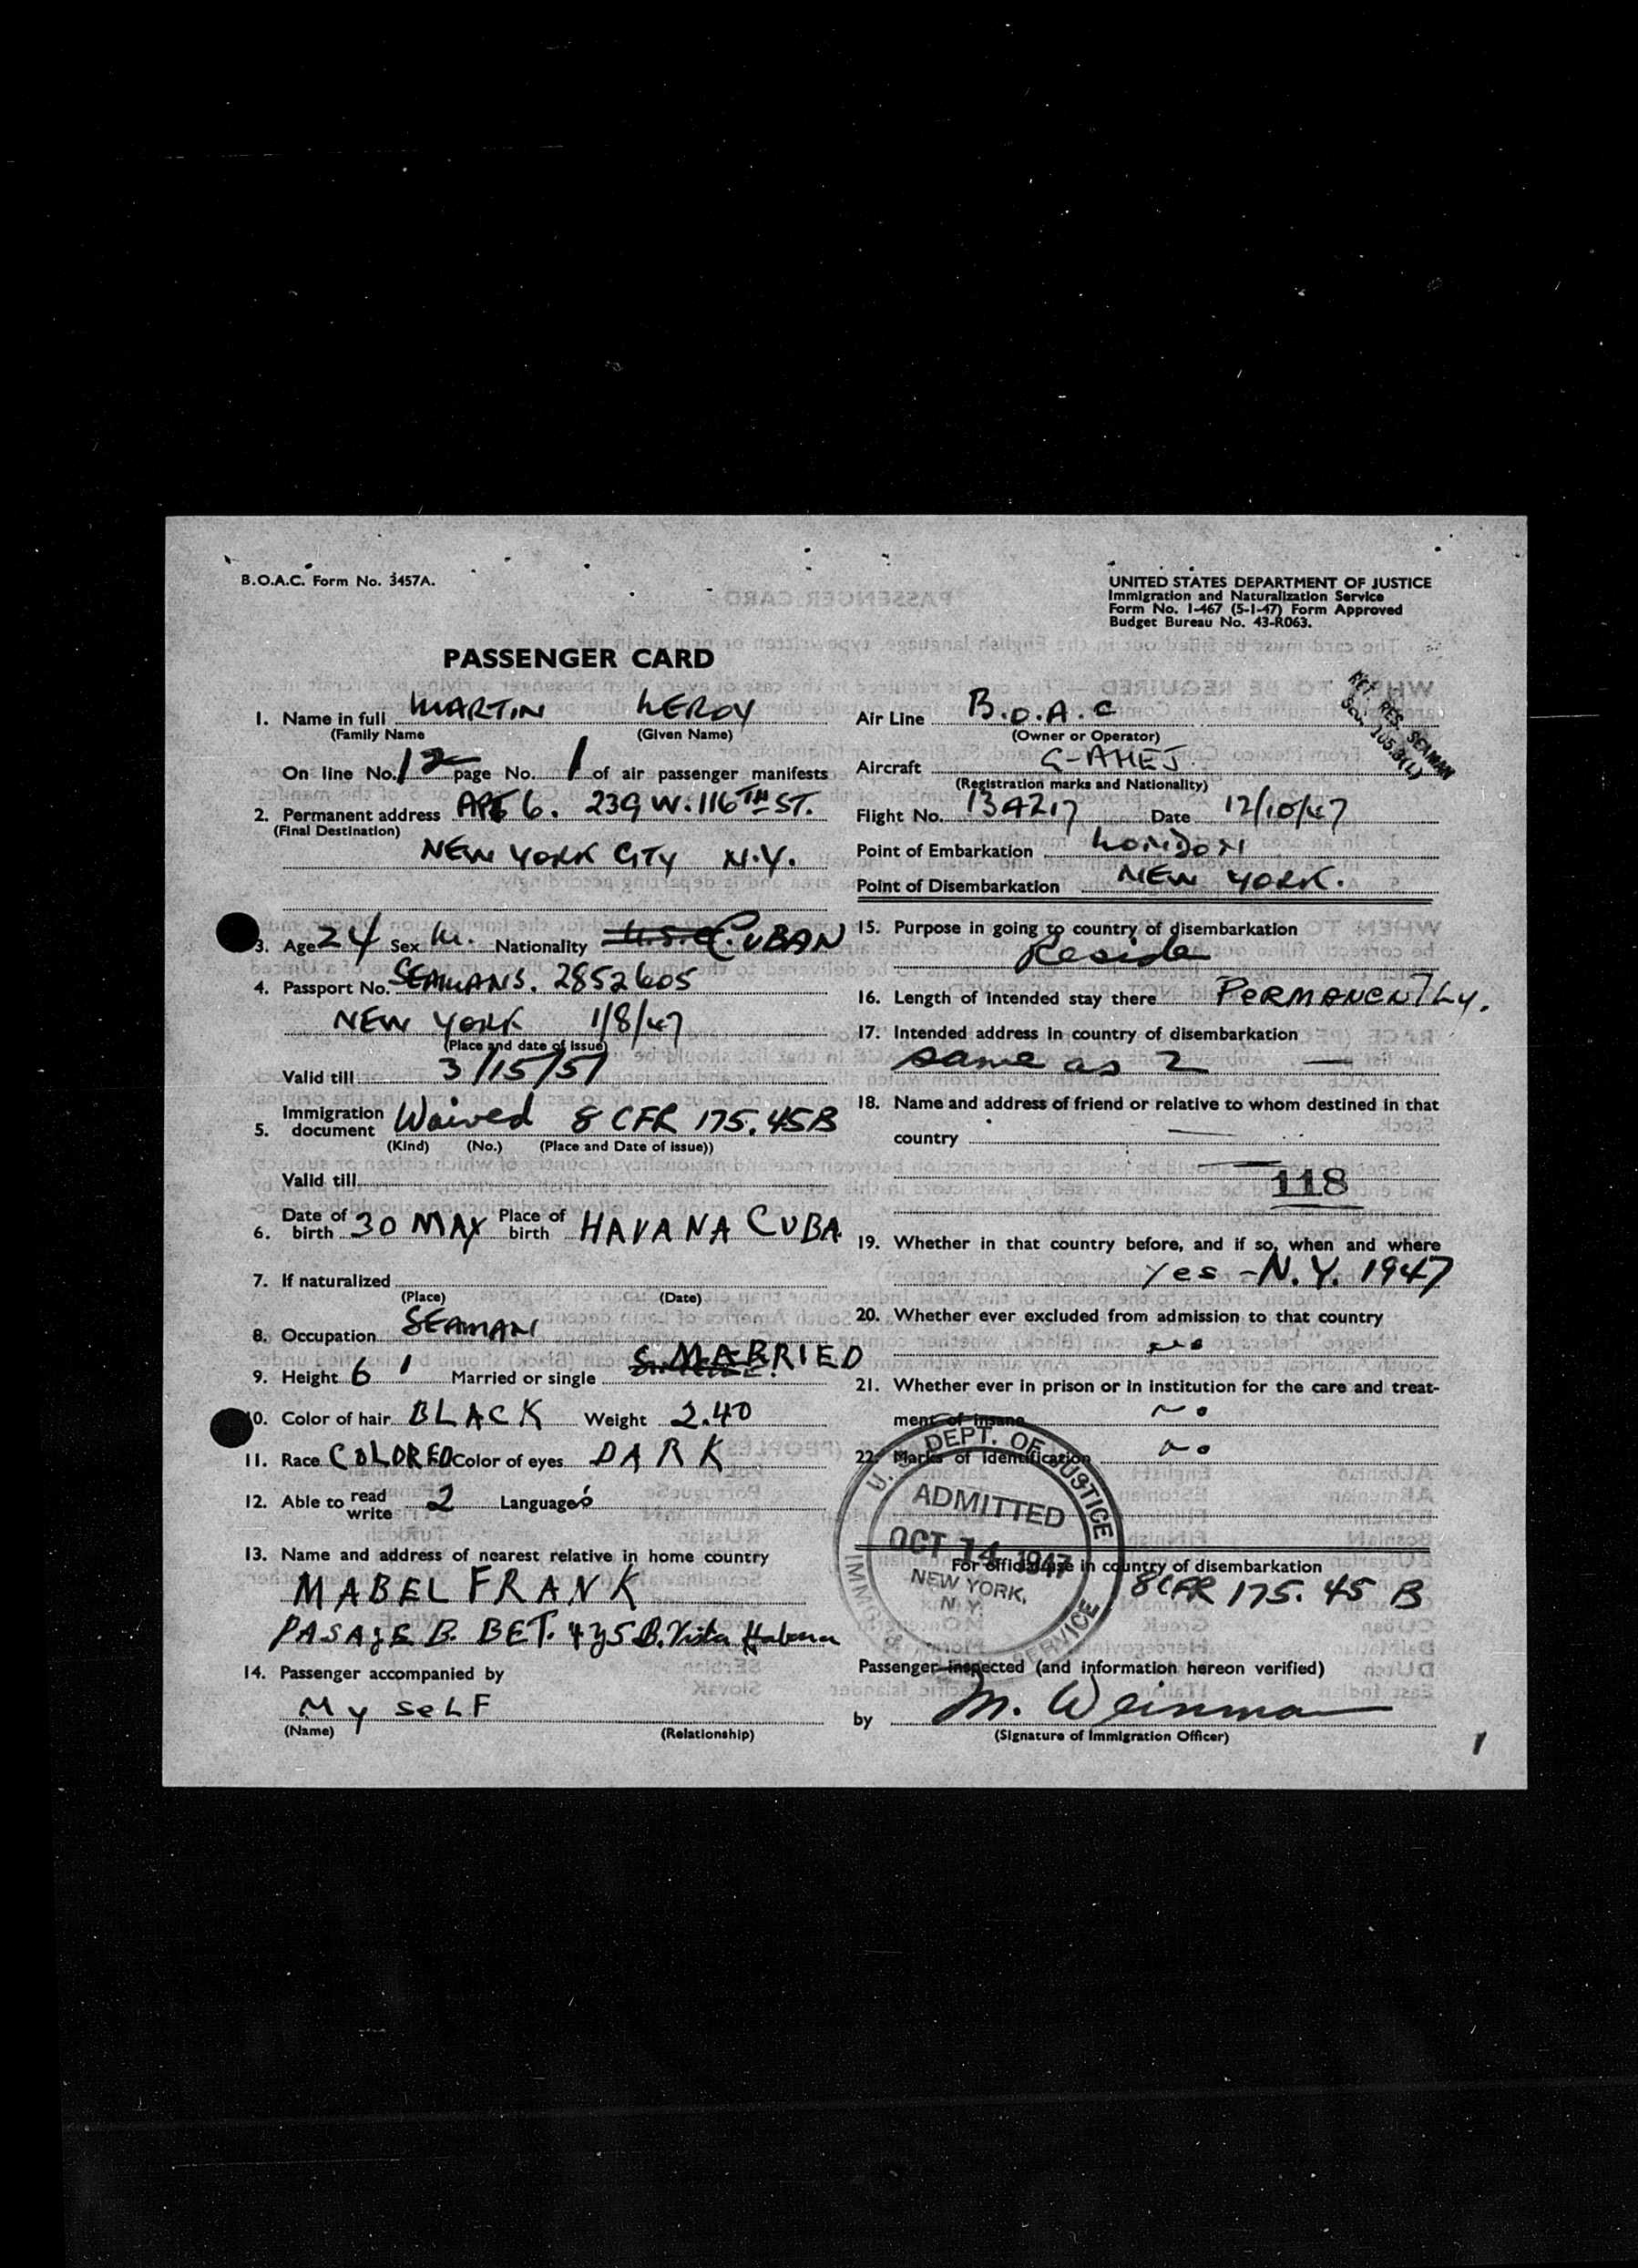 B.O.A.C. Form No. 3457A.
UNITED STATES DEPARTMENT OF JUSTICE
Immigration and Naturalization Service
Form No. I-467 (5-1-47) Form Approved
Budget Bureau No. 43-R063.
PASSENGER CARD
RET. RES. SEAMAN
1. Name in full MARTIN LEROY
(Family Name (Given Name)
On line No. 12 page No. 1 of air passenger manifests
2. Permanent address APT 6. 239 W. 116TH ST.
(Final Destination)
NEW YORK CITY N.Y.
3. Age 24 Sex M. Nationality U.S.C. CUBAN
4. Passport No. SEAMANS. 2852605
NEW YORK 1/8/47
(Place and date of issue)
Valid till 3/15/51
5. Immigration document Waived 8 CFR 175.45B
(Kind) (No.) (Place and Date of issue))
Valid till
6. Date of birth 30 MAY Place of birth HAVANA CUBA
7. If naturalized
(Place) (Date)
8. Occupation SEAMAN
9. Height 6 1 Married or single MARRIED
10. Color of hair BLACK Weight 2.40
11. Race COLORED Color of eyes DARK
12. Able to read write 2 Language
13. Name and address of nearest relative in home country
MABEL FRANK
PASAJE B. BET. 4 y 5 B. Vista Habana
14. Passenger accompanied by
MY SELF
(Name) (Relationship)
Air Line B.O.A.C
(Owner or Operator)
Aircraft G-AHEJ
(Registration marks and Nationality)
Flight No. 13A217 Date 12/10/47
Point of Embarkation LONDON
Point of Disembarkation NEW YORK.
15. Purpose in going to country of disembarkation
Reside
16. Length of intended stay there PERMANENTLY.
17. Intended address in country of disembarkation
same as 2 —
18. Name and address of friend or relative to whom destined in that
country —
118
19. Whether in that country before, and if so, when and where
Yes - N.Y. 1947
20. Whether ever excluded from admission to that country
no
21. Whether ever in prison or in institution for the care and treat-
ment of insane no
22. Marks of identification no
U.S. DEPT. OF JUSTICE
ADMITTED
OCT 14 1947
NEW YORK,
N.Y.
IMMIG SERVICE
For official use in country of disembarkation
8 CFR 175.45 B
Passenger inspected (and information hereon verified)
by M. Weinman
(Signature of Immigration Officer)
1